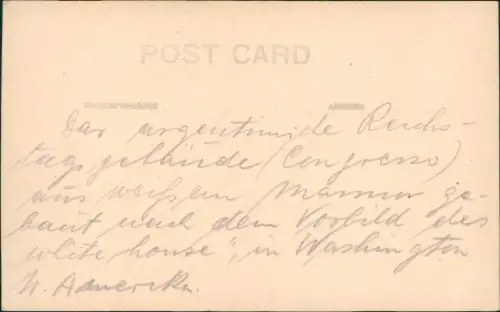 POST CARD
CORRESPONDENCE ADDRESS
Das argentinische Reichs-
tagsgebäude (Congresso)
aus weißem Marmor ge-
baut nach dem Vorbild des
white house", in Washington
N. Amerika.